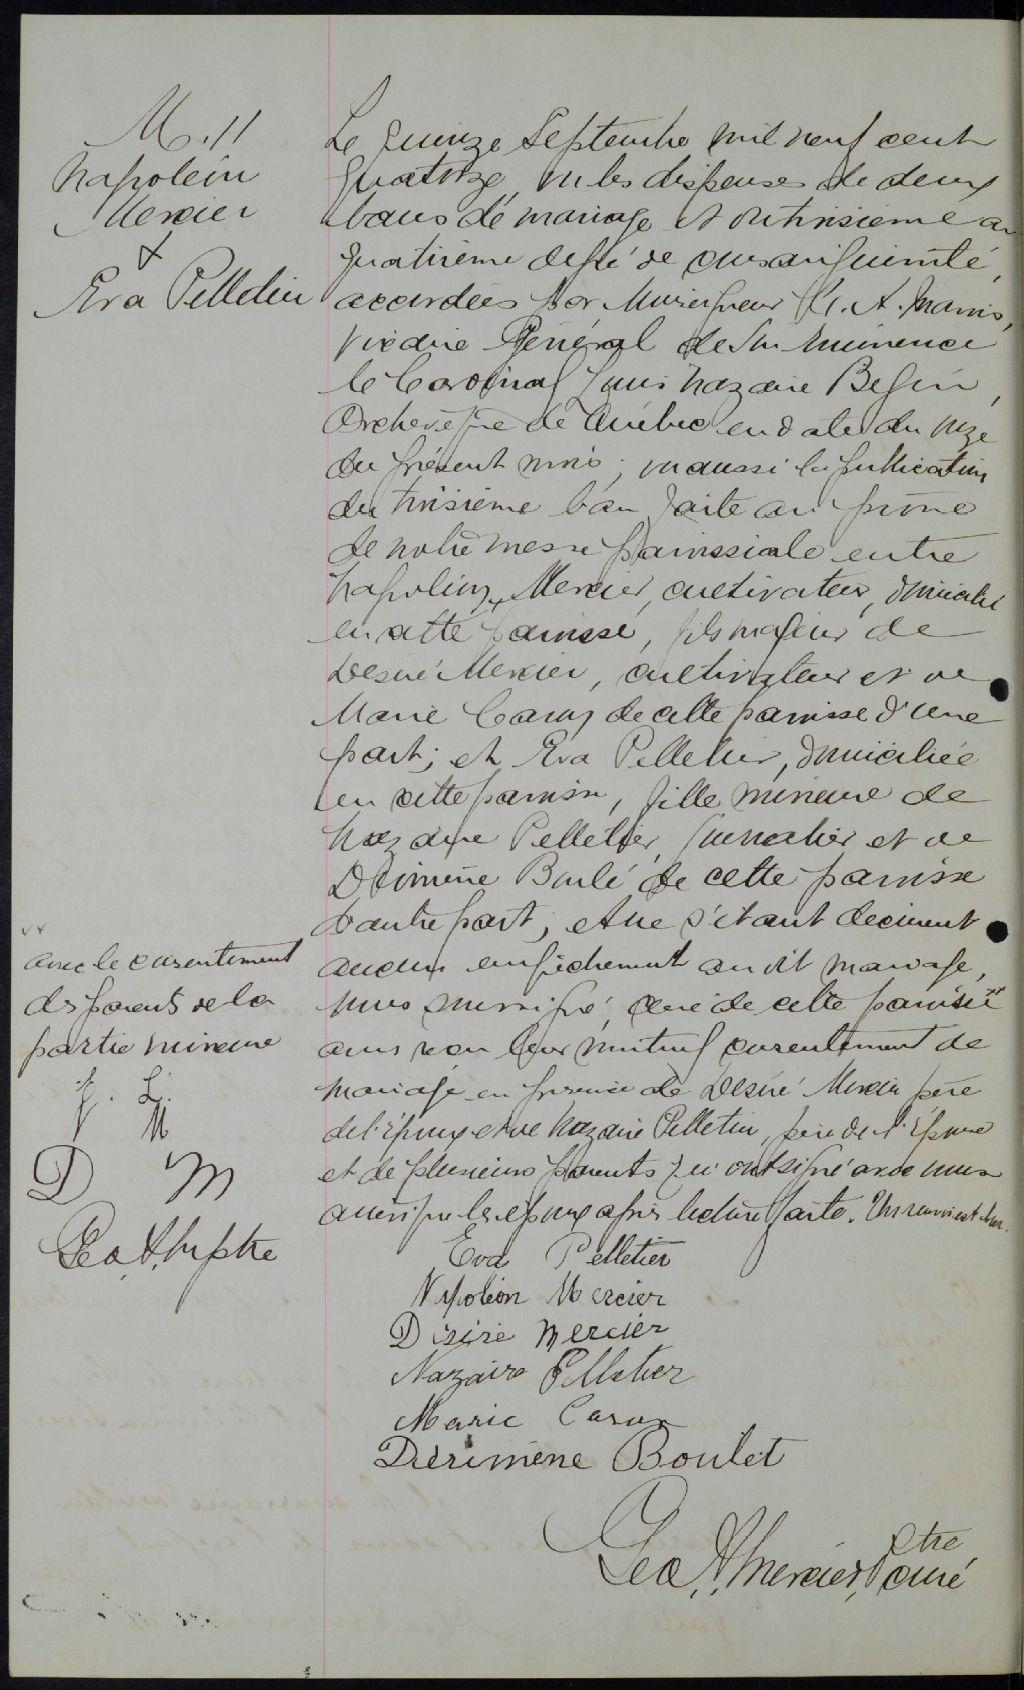 M. 11
Napoléon
Mercier
&
Eva Pelletier
Le quinze Septembre mil neuf cent
quatorze, vu les dispenses de deux
bans de mariage et du troisième au
quatrième degré de consanguinité,
accordées par Monseigneur C. A. Marois,
Vicaire Général de Son Eminence
le Cardinal Louis Nazaire Begin,
Archevêque de Québec en date du onze
du présent mois; vu aussi la publication
du troisième ban faite au prône
de notre messe paroissiale entre
Napoléon Mercier, cultivateur, domicilié
en cette paroisse, fils majeur de
Désiré Mercier, cultivateur et de
Marie Caron de cette paroisse d'une
part; et Eva Pelletier, domiciliée
en cette paroisse, fille mineure de
Nazaire Pelletier, journalier et de
Dérimène Boulé de cette paroisse
d'autre part; et ne s'étant découvert
aucun empêchement au dit mariage,
nous soussigné, curé de cette paroisse
avons reçu leur mutuel consentement de
mariage en présence de Désiré Mercier père
de l'Époux et de Nazaire Pelletier, père de l'Épouse
et de plusieurs parents qui ont signé avec nous
ainsi que les époux après lecture faite. Un renvoi est bon.
avec le consentement
des parents de la
partie mineure
E. P.
N M
D M
Geo. A. M. ptre
Eva Pelletier
Napoléon Mercier
Désiré Mercier
Nazaire Pelletier
Marie Caron
Dérimène Boulet
Geo. A. Mercier, Ptre
curé